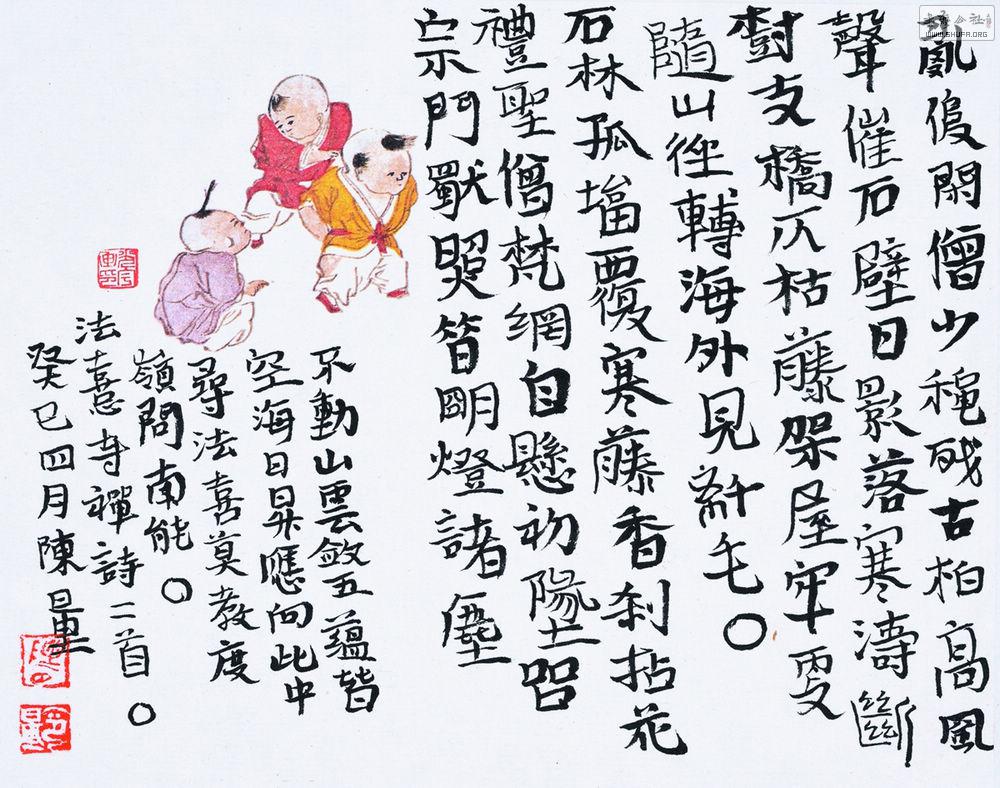 亂後閑僧少穐残古柏高風
聲催石壁日影落寒濤斷
樹支橋仄枯藤架屋牢更
隨山徑轉海外見毛〇
石林孤塔覆寒藤香刹拈花
禮聖僧梵網自懸初墜
宗門照昔明燈諸塵
不動山雲斂五蘊皆
空海日昇應向此中
尋法喜莫教度
嶺問南能〇
法喜寺禪詩二首〇
癸巳四月陳量
WWW.SHUFA.ORG